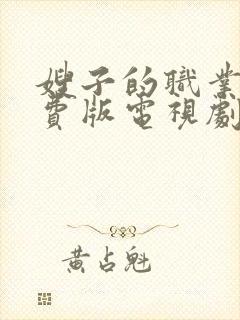 嫂子的職業
費版電視劇
黃占魁